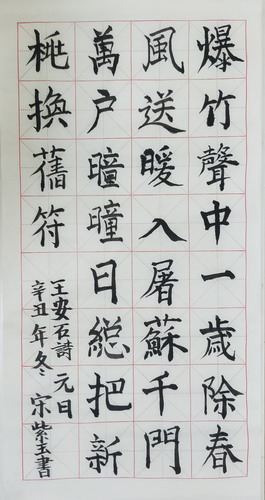 爆竹聲中一歲除春
風送暖入屠蘇千門
萬户曈曈日總把新
桃換舊符
王安石詩元日
辛丑年冬宋紫玉書